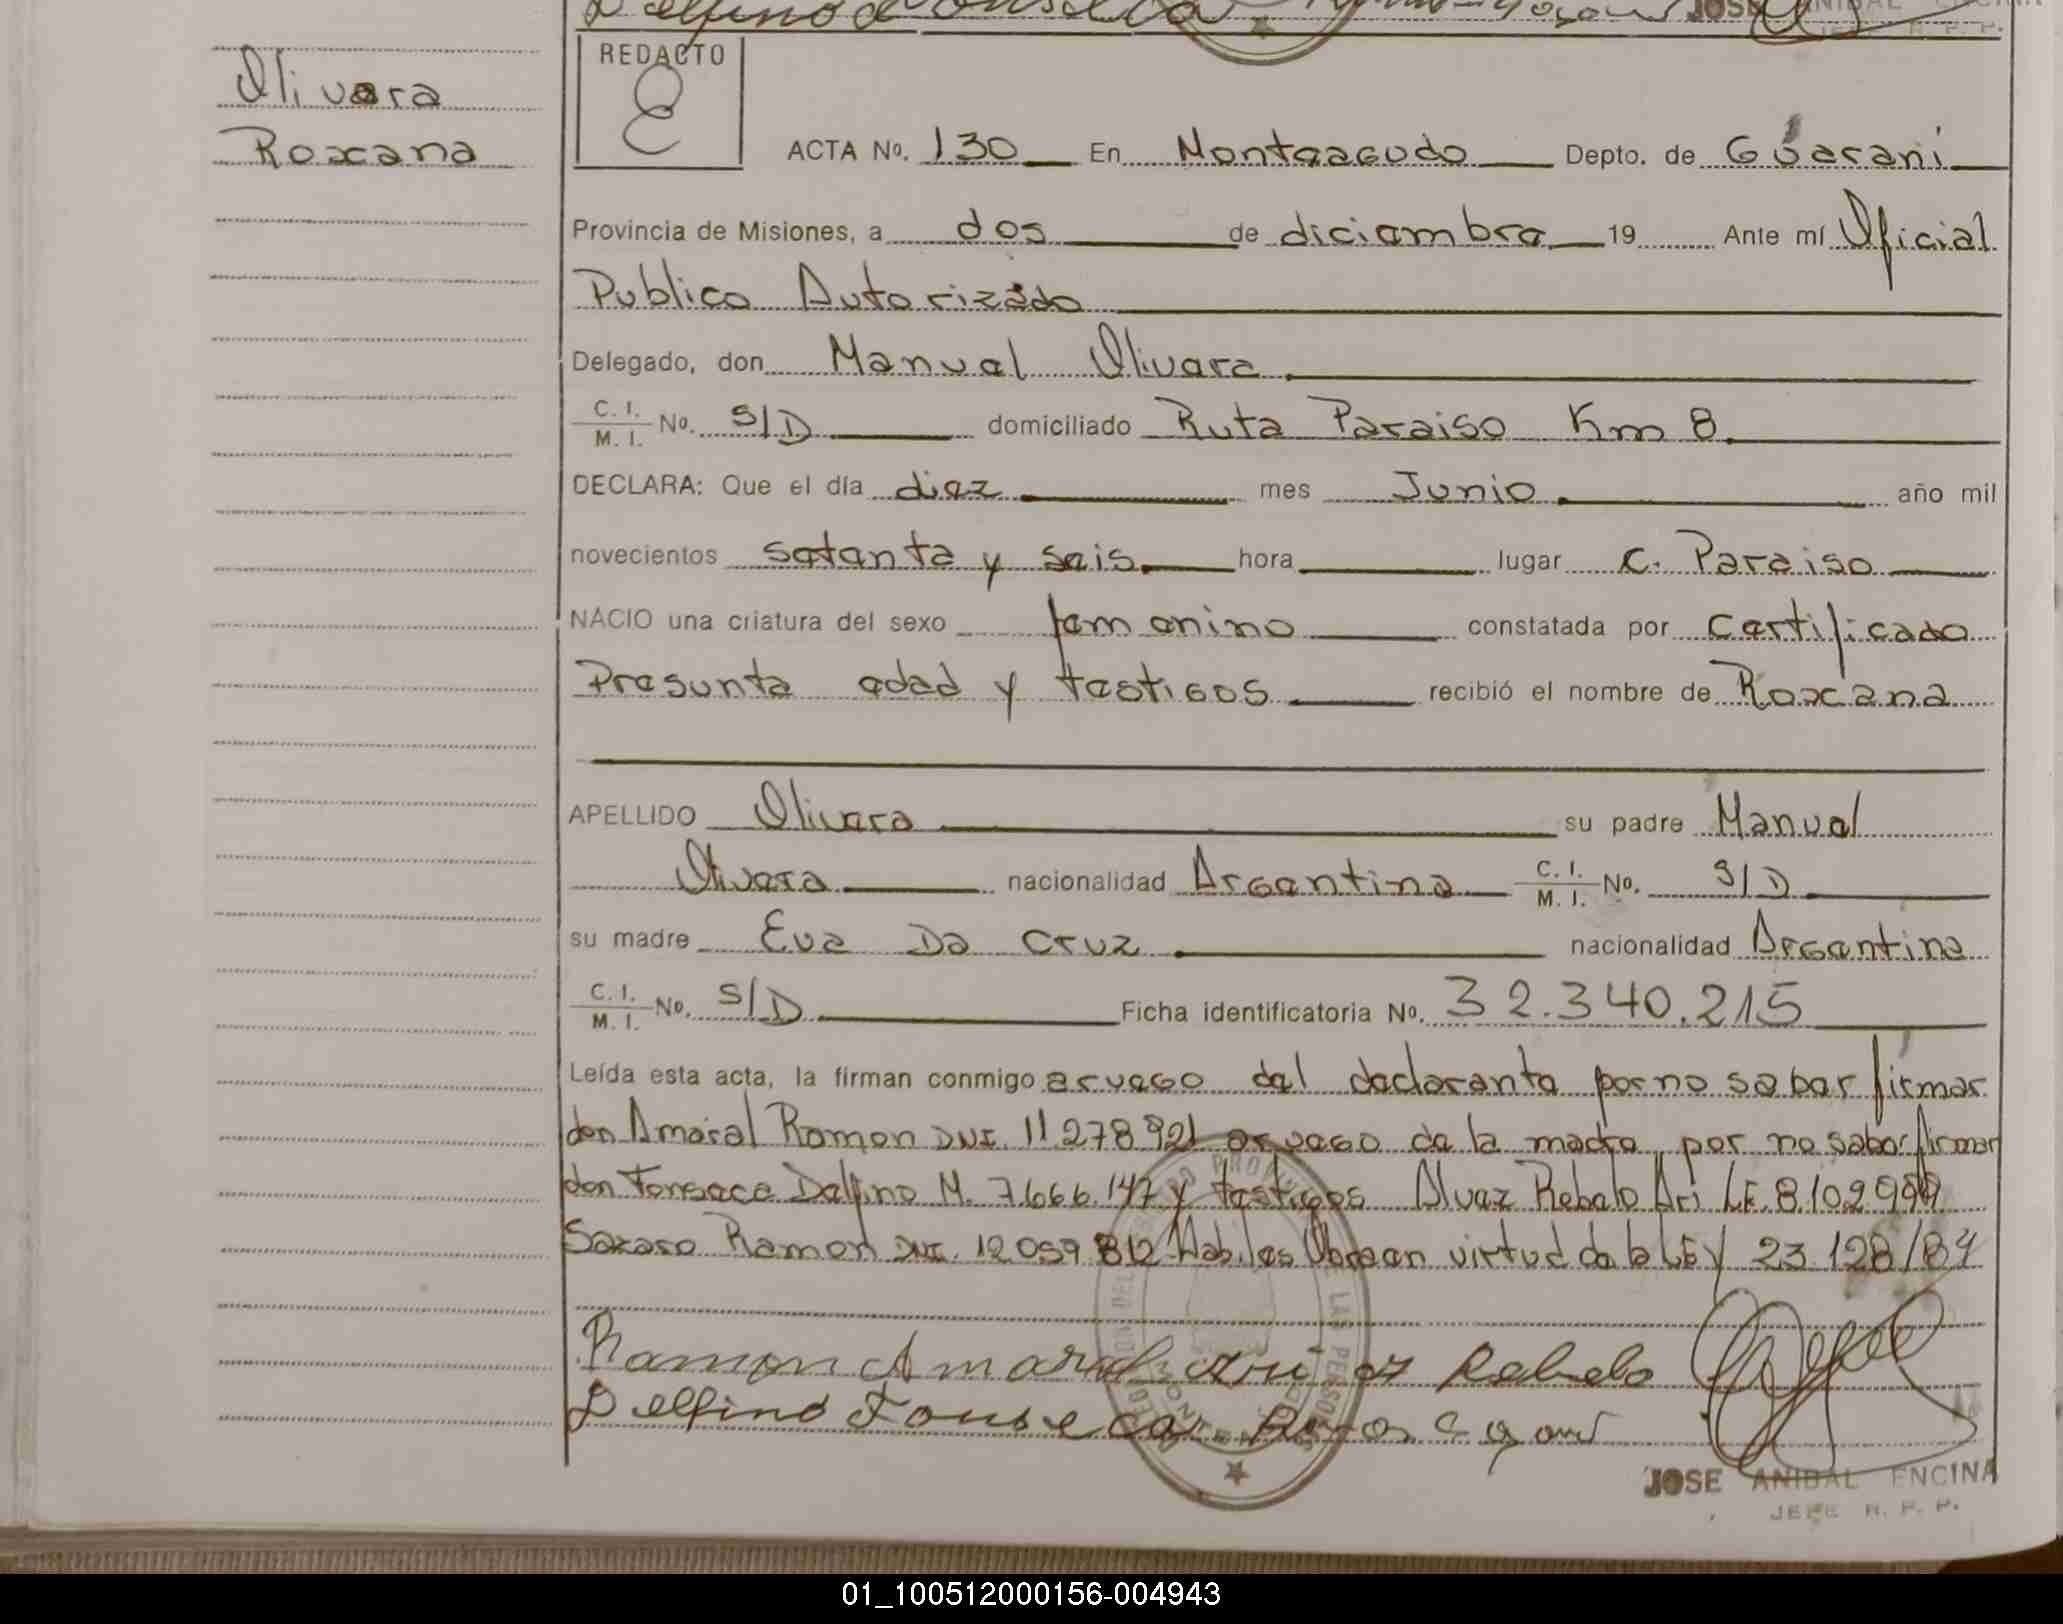 JOSE ANIBAL ENCINA
JEFE R. P. P.
Olivera
Roxana
REDACTO
ACTA No. 130 En Monteagudo Depto. de Guarani
Provincia de Misiones, a dos de diciembre 19 Ante mí Oficial
Publico Autorizado
Delegado, don Manuel Olivera
C. I.
M. I. No. S/D domiciliado Ruta Paraiso Km 8
DECLARA: Que el día diez mes Junio año mil
novecientos setenta y seis hora lugar C. Paraiso
NACIO una criatura del sexo femenino constatada por Certificado
Presunta edad y testigos recibió el nombre de Roxana
APELLIDO Olivera su padre Manuel
Olivera nacionalidad Argentina C. I.
M. I. No. S/D
su madre Eva Da Cruz nacionalidad Argentina
C. I.
M. I. No. S/D Ficha identificatoria No. 32.340.215
Leída esta acta, la firman conmigo a ruego del declarante por no saber firmar
don Amaral Ramon DNI. 11278921 a ruego de la madre por no saber firmar
don Fonseca Delfino M. 7.666.147 y testigos Alvez Rebelo Ari LE. 8.102.999
Ramon DNI. 12 059 812 Habiles Obre en virtud de la LEY 23.128/84
Ramon Amaral Ari Rebelo
Delfino Fonseca
JOSE ANIBAL ENCINA
JEFE R. P. P.
01_100512000156-004943